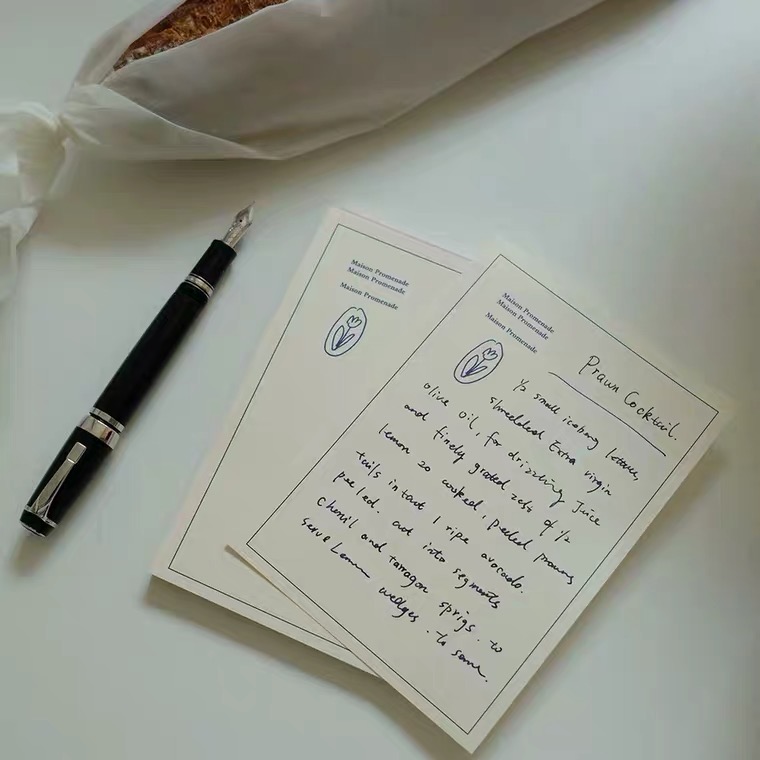 Maison Promenade
Maison Promenade
Maison Promenade
Maison Promenade
Maison Promenade
Maison Promenade
Prawn Cocktail.
1/2 small iceberg lettuce,
shredded Extra virgin
olive oil, for drizzling Juice
and finely grated zest of 1/2
lemon 20 cooked, peeled prawns
tails intact 1 ripe avocado.
peeled. cut into segments
Chervil and tarragon sprigs. to
serve Lemon wedges. to serve.